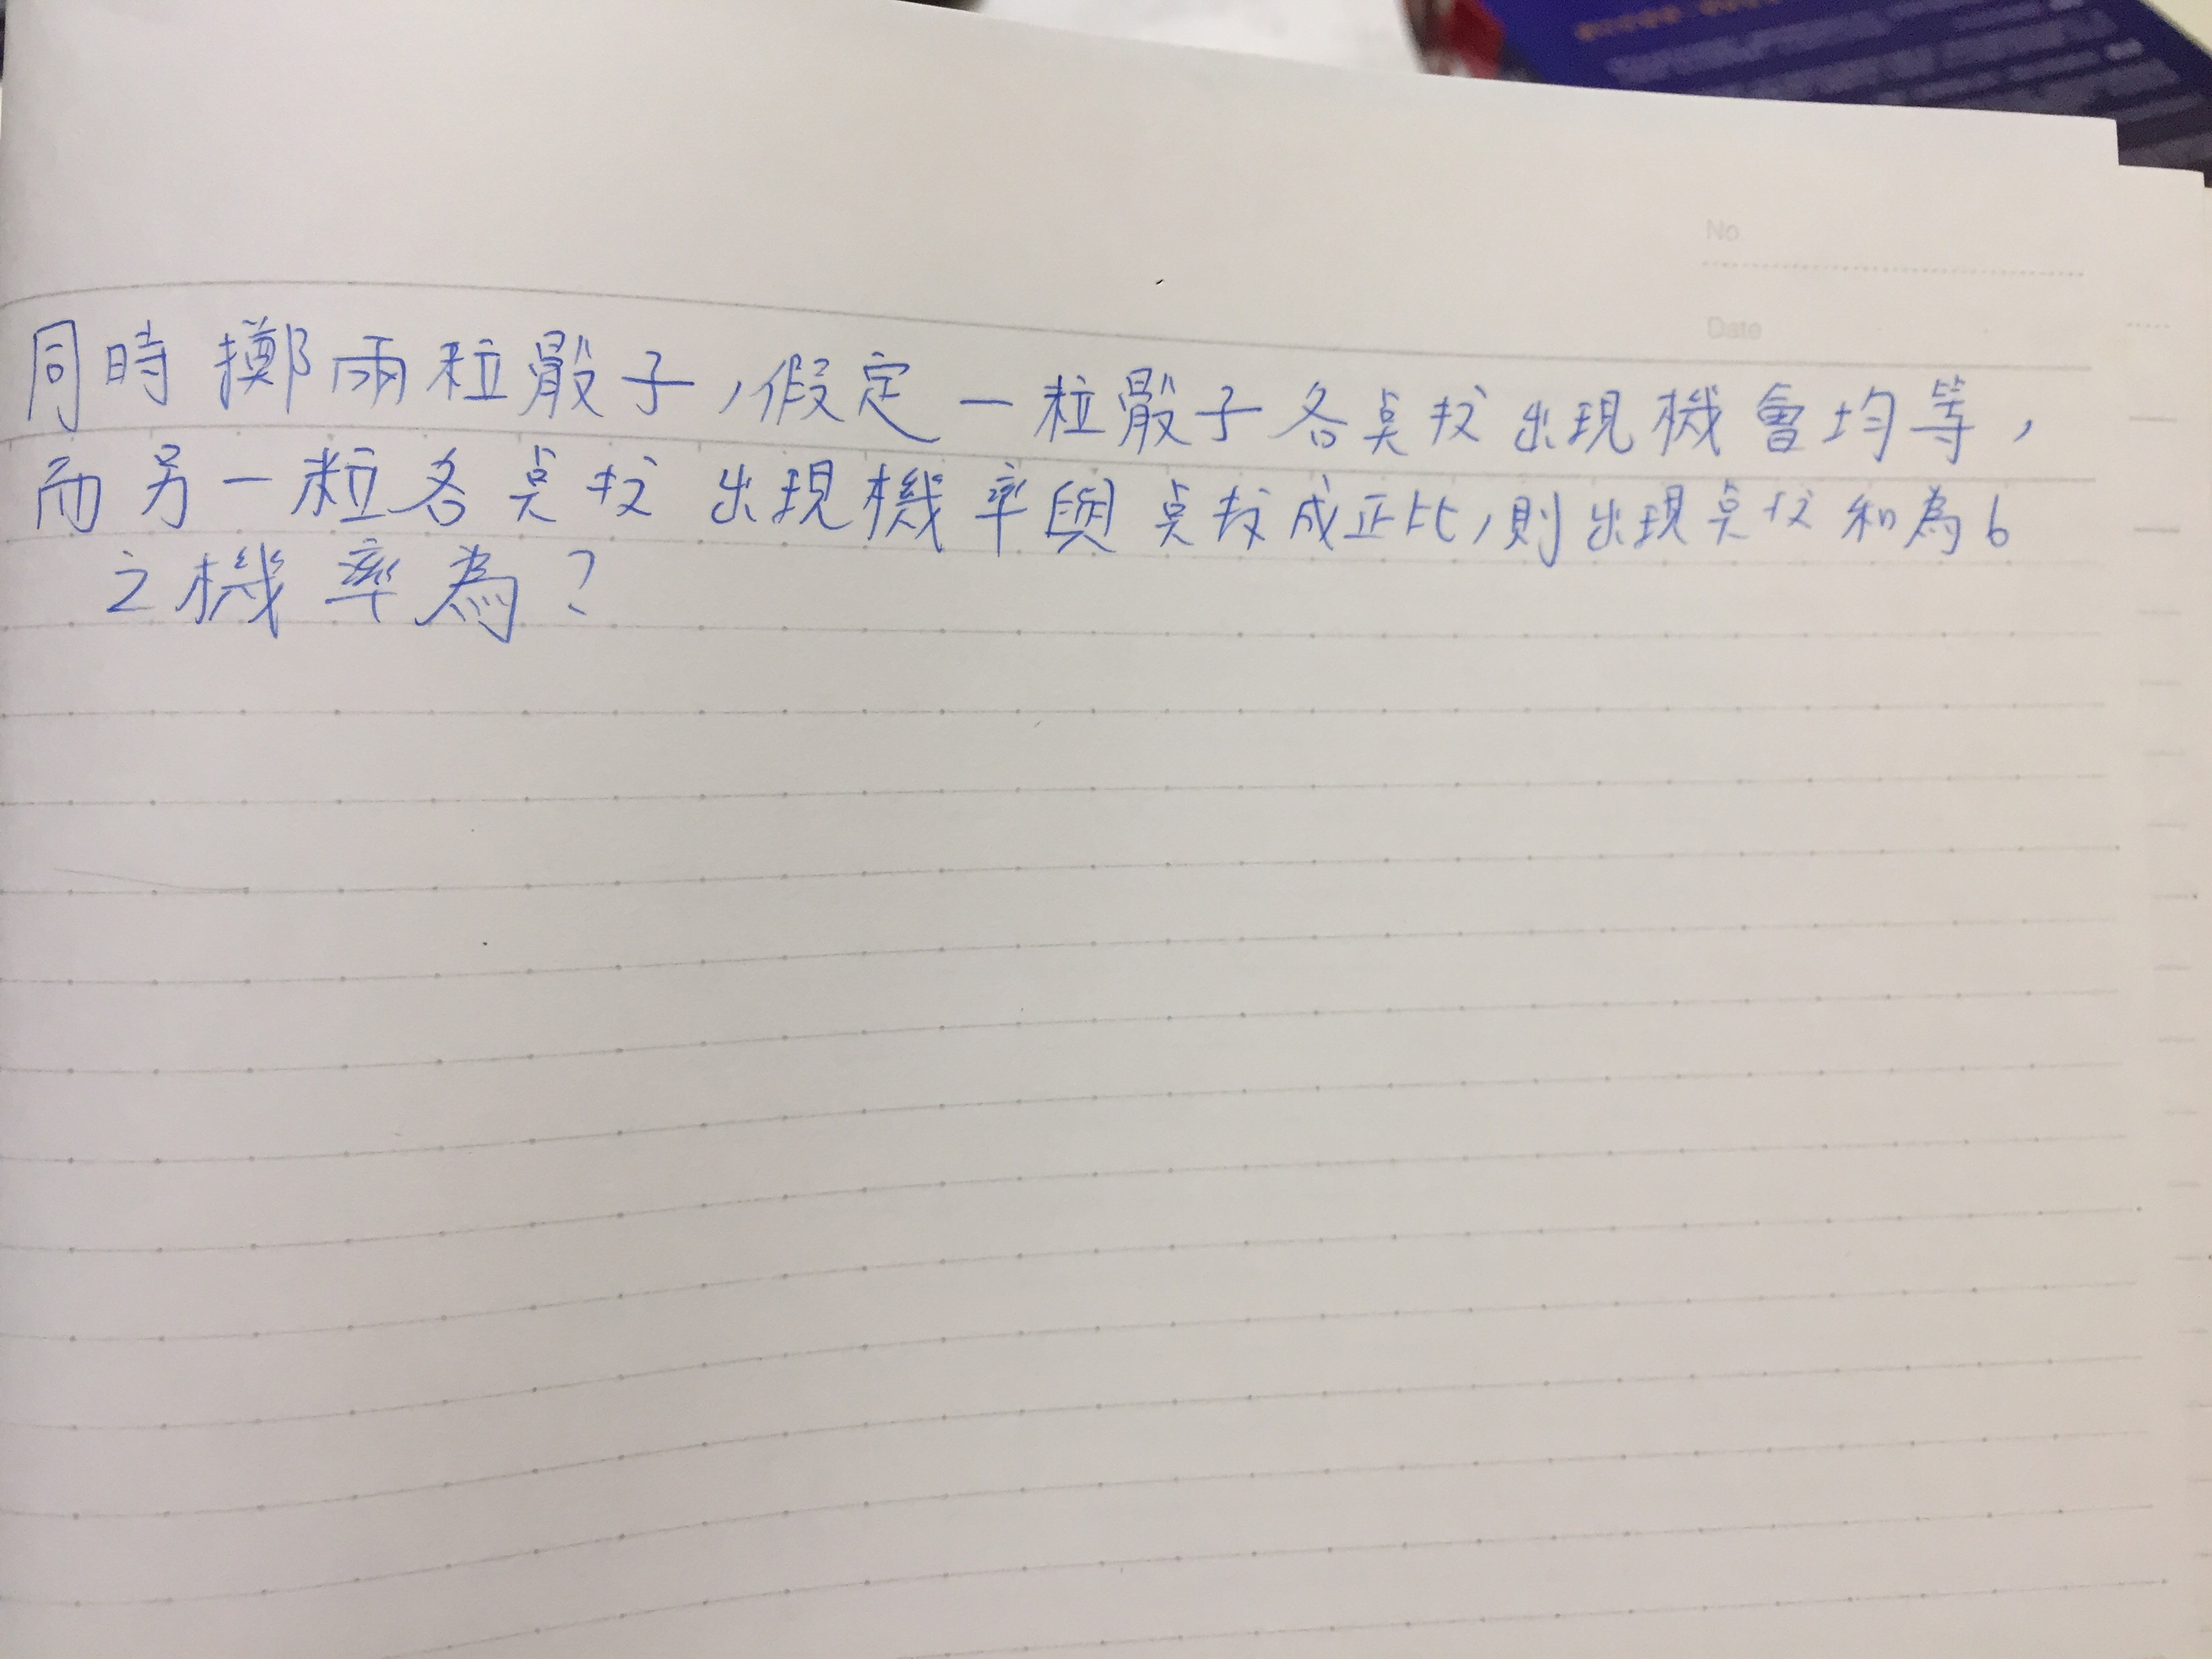 No
Date
同時擲兩粒骰子,假定一粒骰子各點数出現機會均等,
而另一粒各點数出現機率與點数成正比,則出現點数和為6
之機率為?